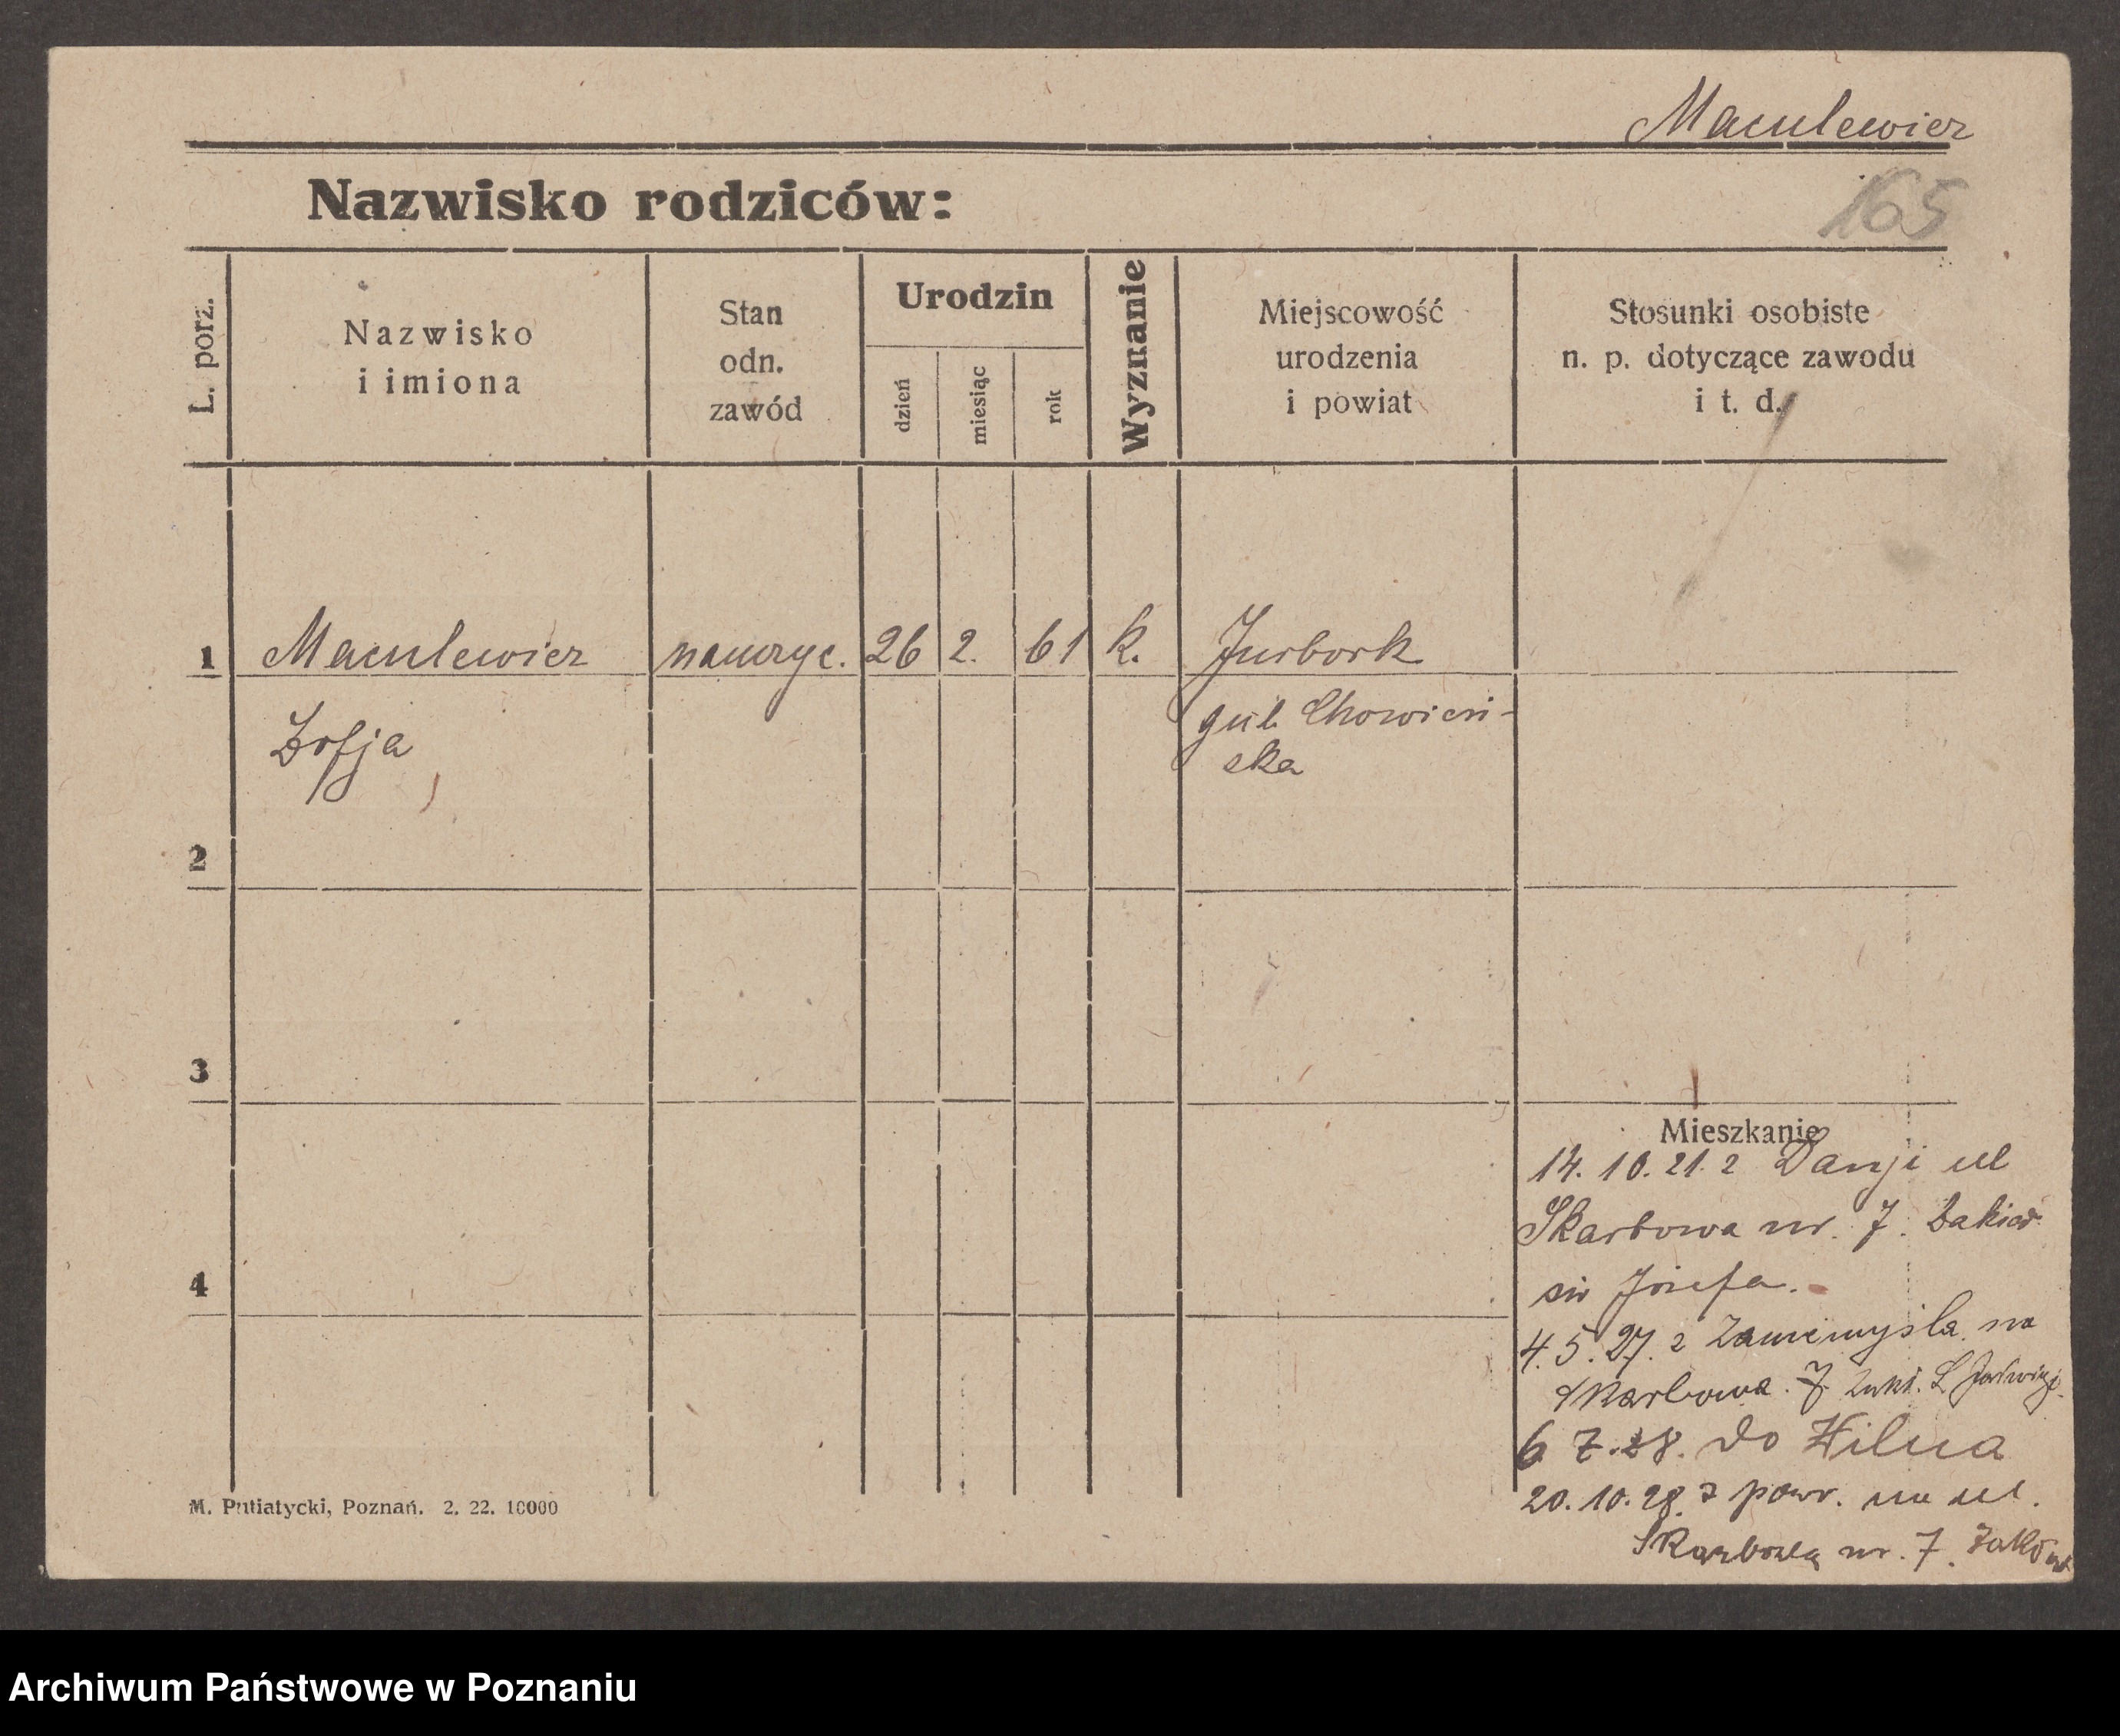 Maculewicz
Nazwisko rodziców:
165
L. porz.
Nazwisko
i imiona
Stan
odn.
zawód
Urodzin
dzień
miesiąc
rok
Wyznanie
Miejscowość
urodzenia
i powiat
Stosunki osobiste
n. p. dotyczące zawodu
i t. d.
1 Maculewicz nauczyc. 26 2. 61 k. Jurbork
Zofja
gub.
ska
2
3
4
Mieszkanie
14. 10. 21. z Danji ul
Skarbowa nr. 7.
św Józefa.
4. 5. 27. z Zaniemyśla na
Skarbowa. 7
6 7. 28. do Wilna
20. 10. 28 z powr. na ul.
Skarbową nr. 7.
M. Putiatycki, Poznań. 2. 22. 10000
Archiwum Państwowe w Poznaniu